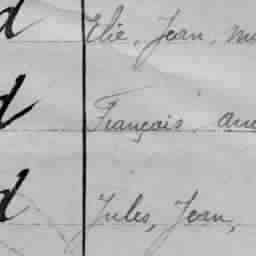 d Elie, Jean,
d François.
d Jules, Jean,